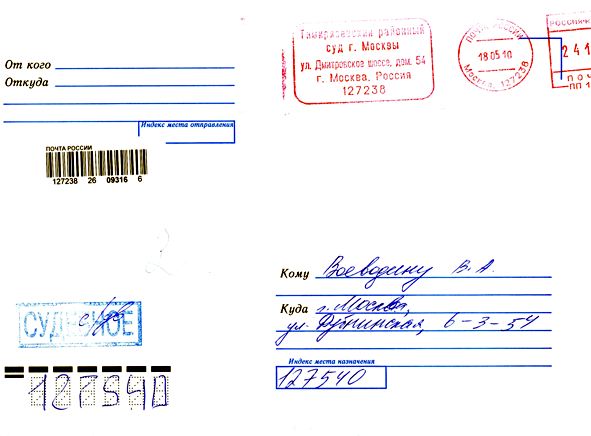 От кого
Откуда
Индекс места отправления
ПОЧТА РОССИИ
127238 26 09316 6
Тимирязевский районный
суд г. Москвы
ул. Дмитровское шоссе, дом. 54
г. Москва, Россия
127238
ПОЧТА РОССИИ
18 05 10
Москва, 127238
241
СУДЕБНОЕ
Кому Воеводину В. А.
Куда г. Москва,
ул. Дубнинская, 6-3-54
Индекс места назначения
127540
127540